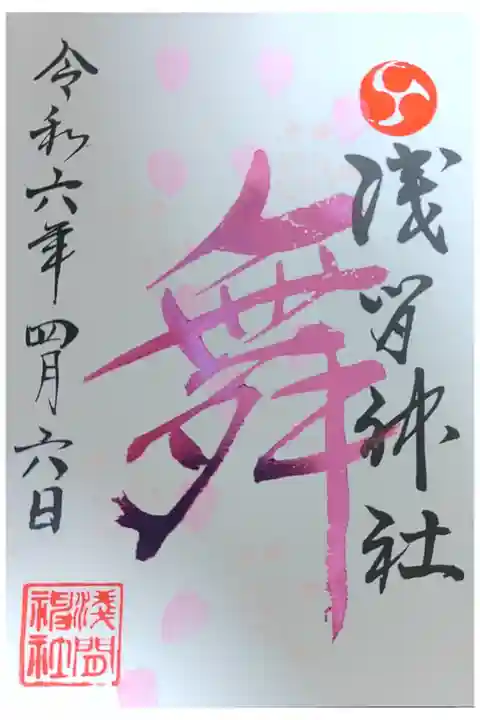 浅間神社
舞
令和六年四月六日
淺間
神社